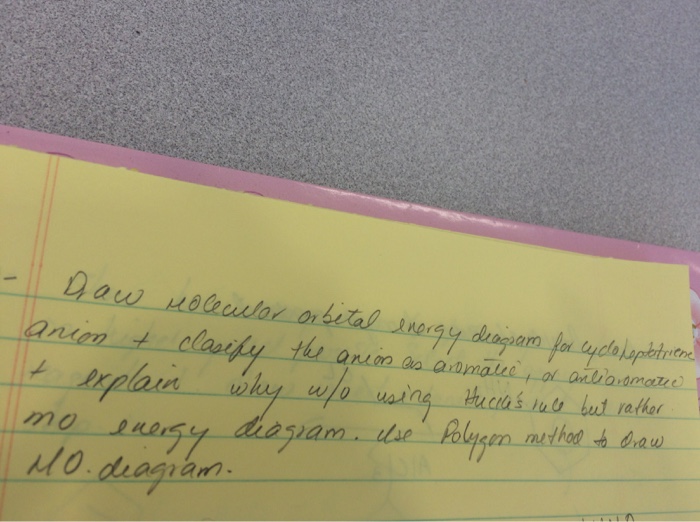 - Draw Molecular orbital energy diagram for cycloheptatriene
anion + clasify the anion as aromatic, or antiaromatic
+ explain why w/o using Huckel's rule but rather
mo energy diagram. Use Polygon method to draw
MO. diagram.